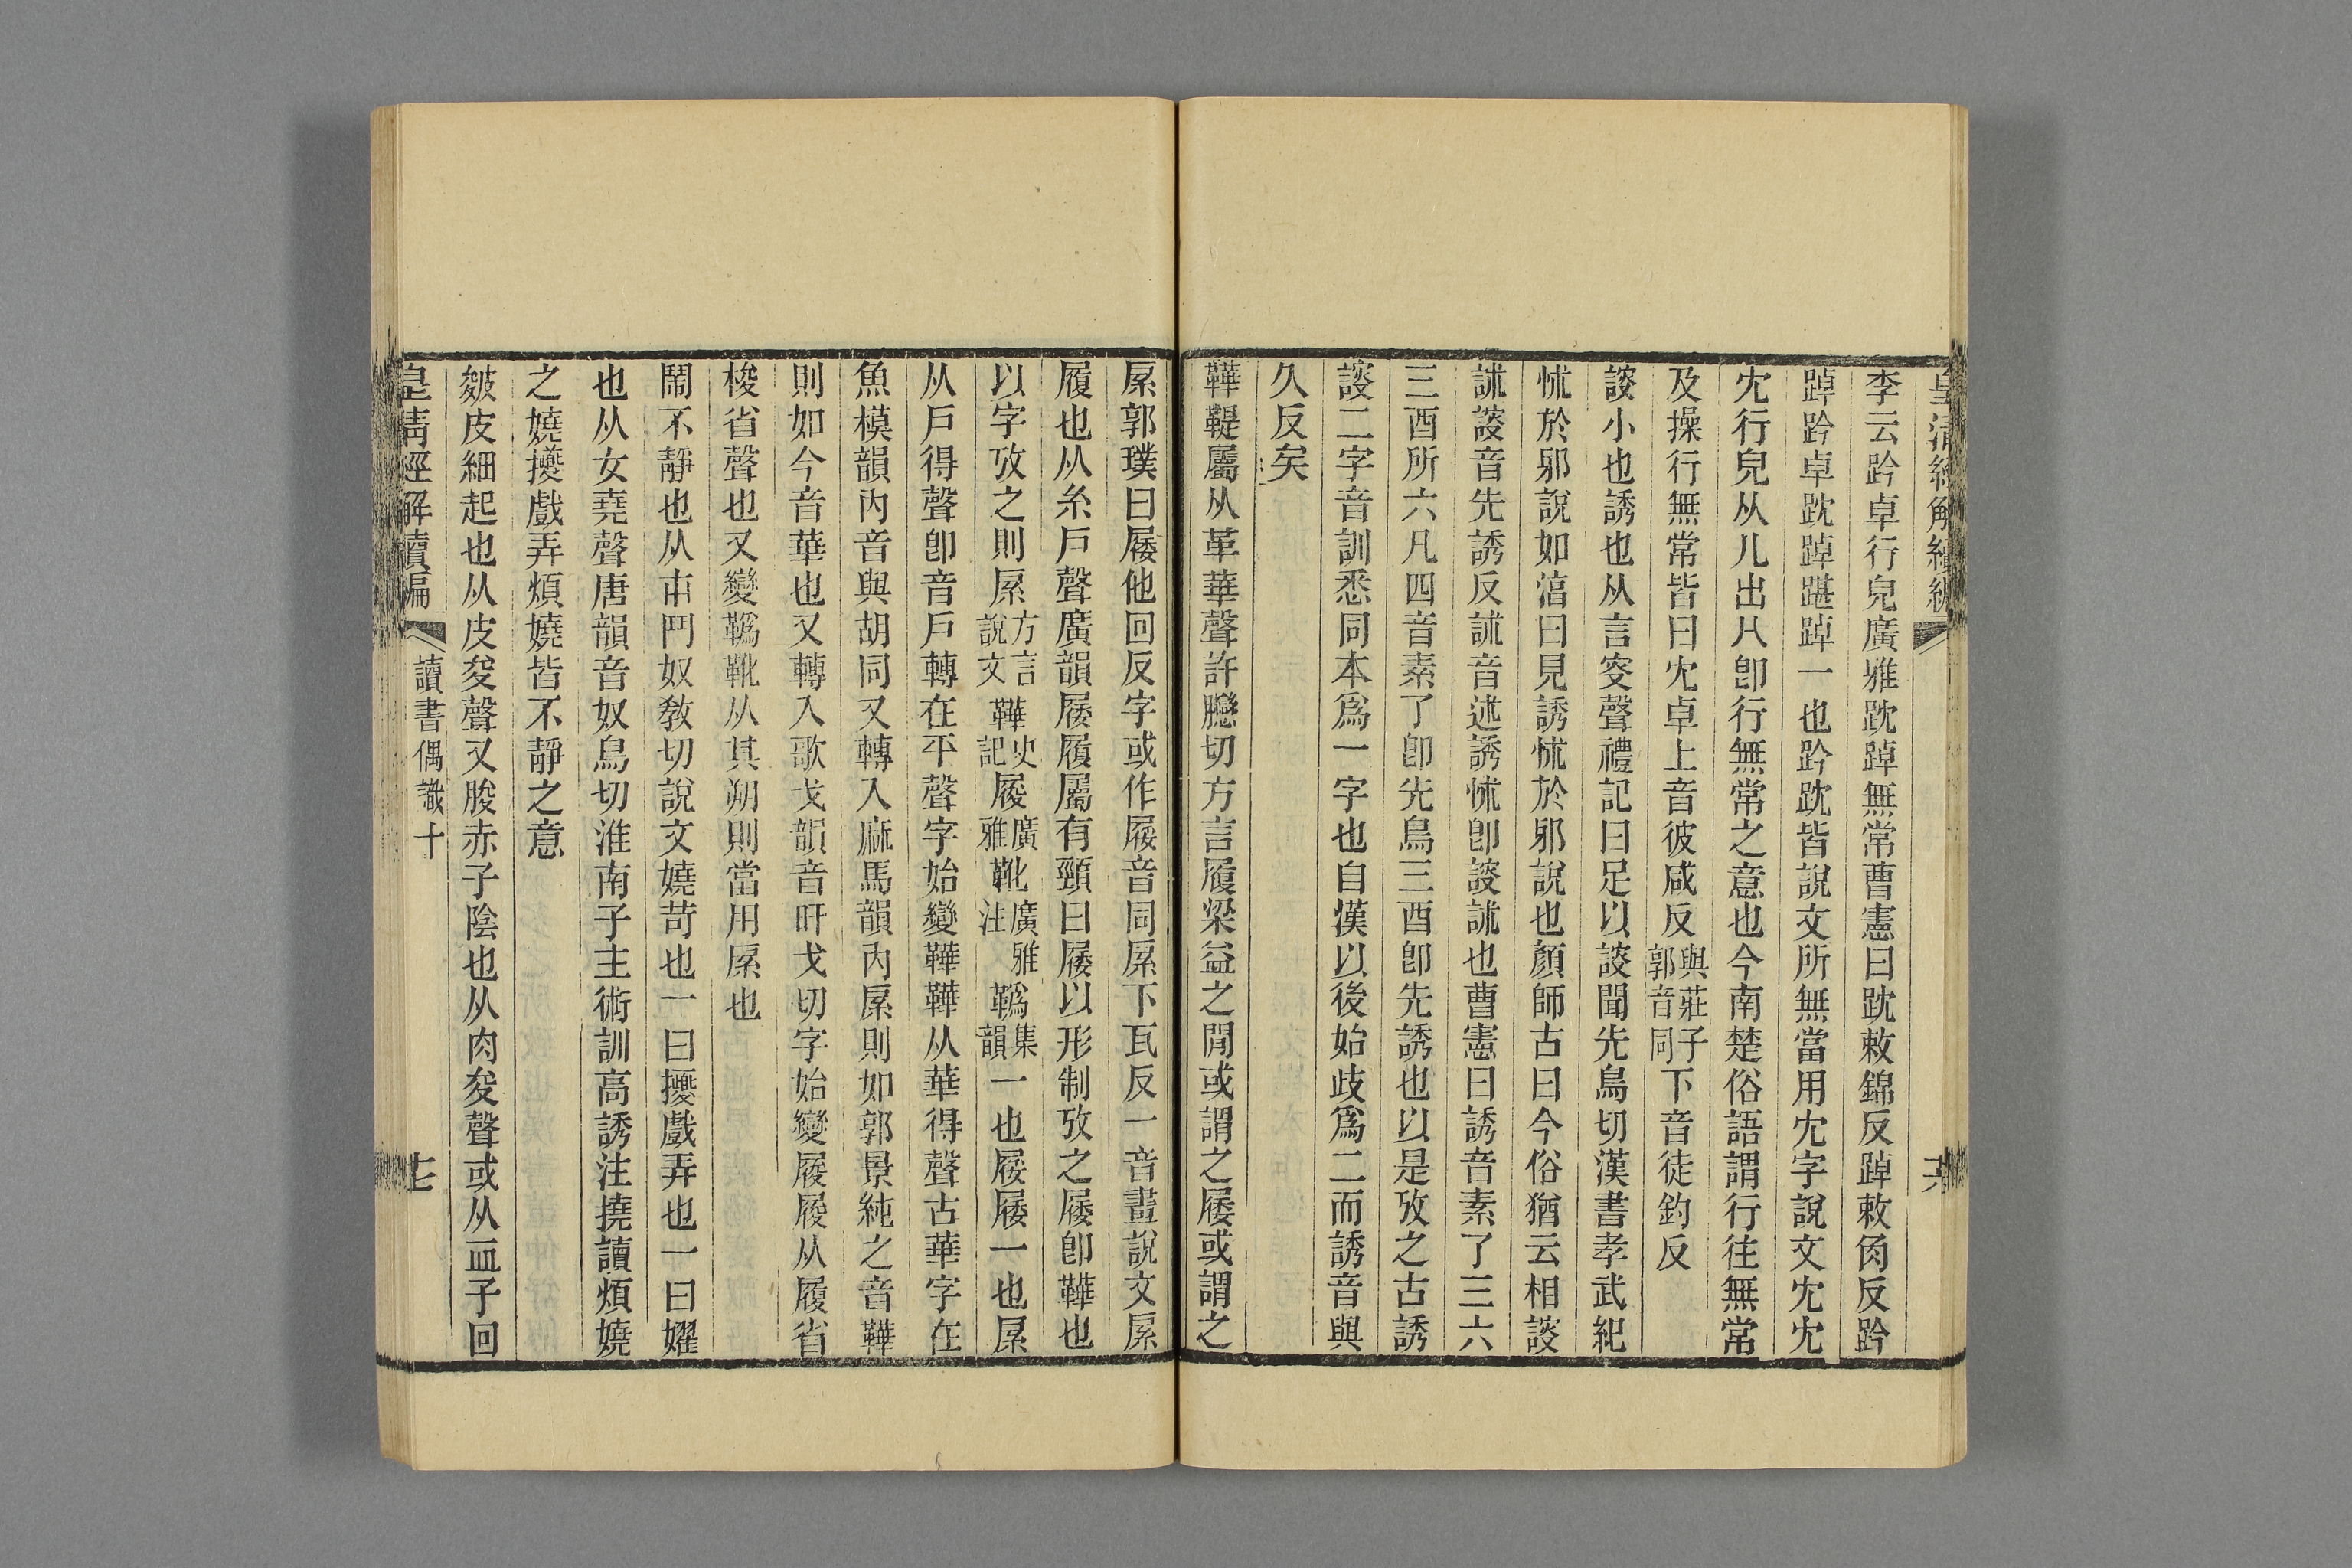 皇清經解續編
李云趻卓行皃廣雅踸踔無常曹憲曰踸敕錦反踔敕角反趻
踔趻卓踸踔踑踔一也趻踸皆說文所無當用冘字說文冘冘
冘行皃从儿出八卽行無常之意也今南楚俗語謂行往無常
及操行無常皆曰冘卓上音彼咸反與莊子郭音同下音徒釣反
謏小也誘也从言叜聲禮記曰足以謏聞先鳥切漢書孝武紀
怵於邪說如湻曰見誘怵於邪說也顏師古曰今俗猶云相謏
訹謏音先誘反訹音述誘怵卽謏訹也曹憲曰誘音素了三六
三酉所六凡四音素了卽先鳥三酉卽先誘也以是攷之古誘
謏二字音訓悉同本爲一字也自漢以後始歧爲二而誘音與
久反矣
鞾鞮屬从革華聲許戄切方言履梁益之閒或謂之屦或謂之
㞆郭璞曰屦他回反字或作屦音同㞆下瓦反一音畫說文㞆
履也从糸戶聲廣韻屦履屬有頸曰屦以形制攷之屦卽鞾也
以字攷之則㞆方言說文鞾史記履廣雅靴廣雅注鞾集韻一也屦屦一也㞆
从戶得聲卽音戶轉在平聲字始變鞾鞾从華得聲古華字在
魚模韻內音與胡同又轉入麻馬韻內㞆則如郭景純之音鞾
則如今音華也又轉入歌戈韻音旰戈切字始變屦屦从履省
梭省聲也又變鞾靴从其朔則當用㞆也
鬧不靜也从巿鬥奴敎切說文嬈苛也一曰擾戲弄也一曰嬥
也从女堯聲唐韻音奴鳥切淮南子主術訓高誘注撓讀煩嬈
之嬈擾戲弄煩嬈皆不靜之意
皴皮細起也从皮夋聲又朘赤子陰也从肉夋聲或从血子回
皇清經解續編
讀書偶識十
七